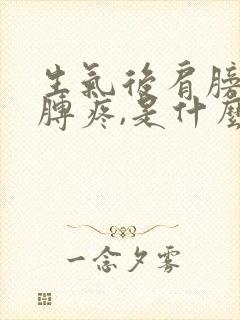 生氣後肩膀
膊疼,是什麼
一念夕雾